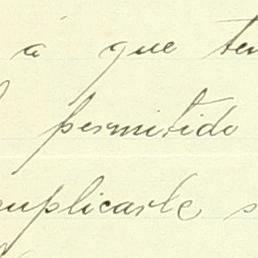 á que ten
permitido
suplicarle s